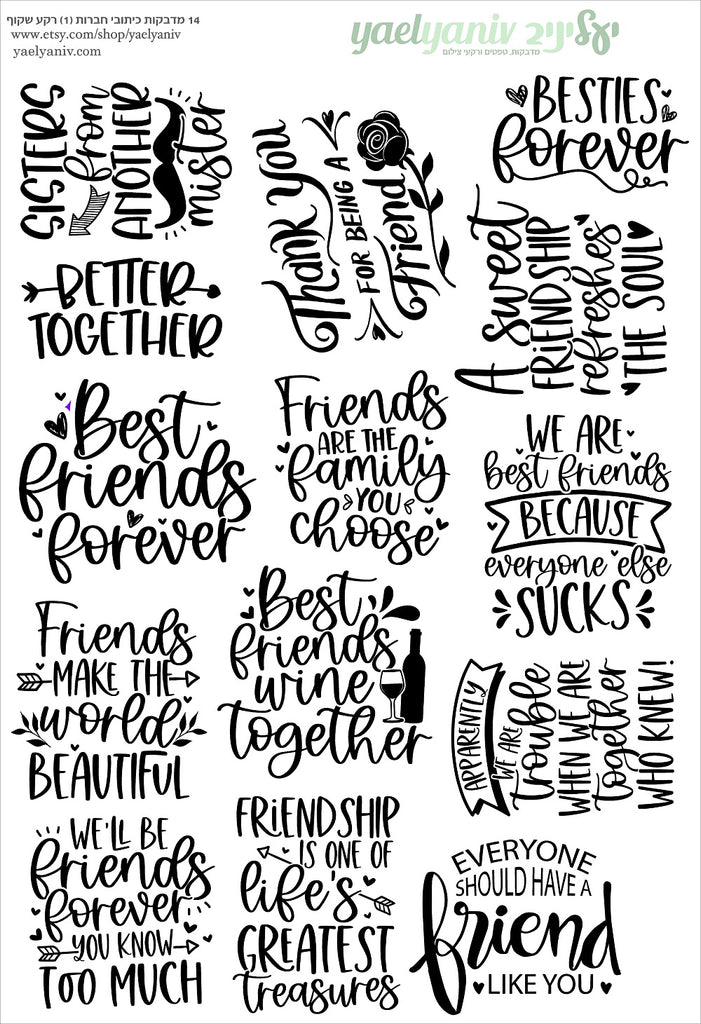 14 מדבקות כיתובי חברות (1) רקע שקוף
www.etsy.com/shop/yaelyaniv
yaelyaniv.com
yaelyaniv יעליניב
מדבקות, טפטים ורקעי צילום
SISTERS
from
ANOTHER
mister
Thank You
FOR BEING A
Friend
BESTIES
forever
BETTER
TOGETHER
A sweet
FRIENDSHIP
refreshes
THE SOUL
Best
friends
forever
Friends
ARE THE
family
YOU
choose
WE ARE
best friends
BECAUSE
everyone else
SUCKS
Friends
MAKE THE
world
BEAUTIFUL
Best
friends
wine
together
APPARENTLY
WE ARE
trouble
WHEN WE ARE
together
WHO KNEW!
WE'LL BE
friends
forever
YOU KNOW
TOO MUCH
FRiENDSHIP
IS ONE OF
life's
GREATEST
treasures
EVERYONE
SHOULD HAVE A
friend
LIKE YOU